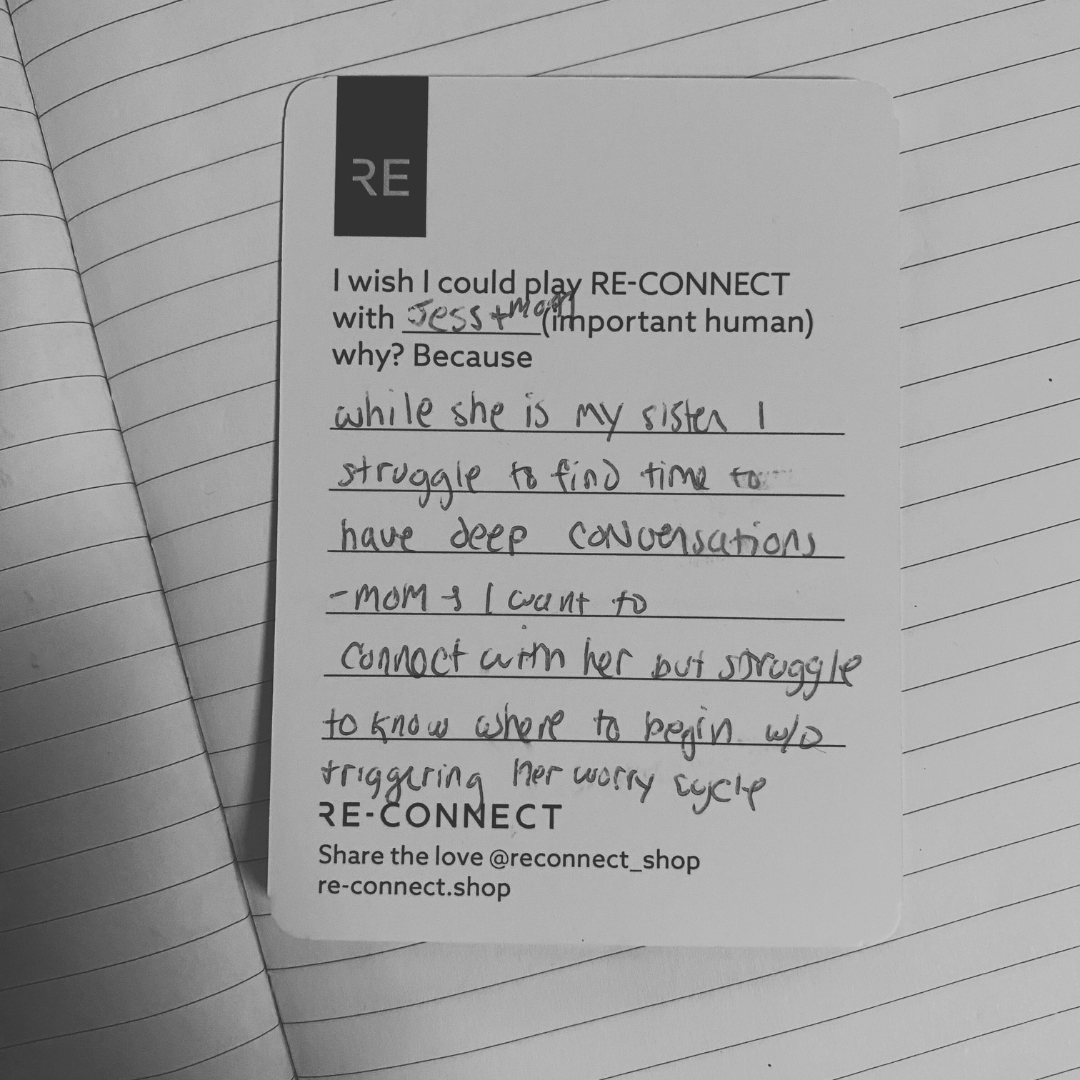 RE
I wish I could play RE-CONNECT
with Jess + Mom (important human)
why? Because
while she is my sister I
struggle to find time to
have deep conversations
- Mom & I want to
connect with her but struggle
to know where to begin w/o
triggering her worry cycle
RE-CONNECT
Share the love @reconnect_shop
re-connect.shop